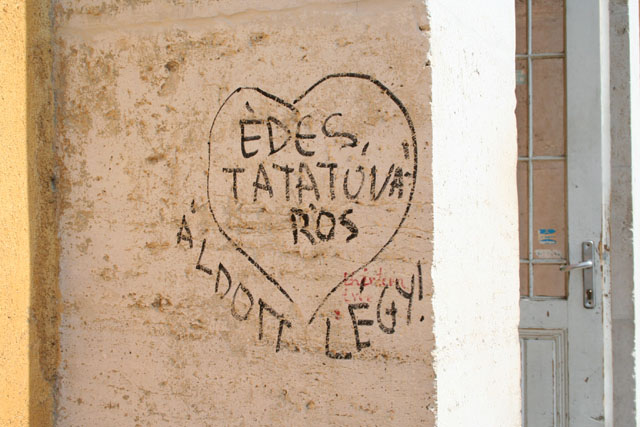 ÈDES,
TATATÚVÁ-
ROS
ÁLDOTT LÉGY!